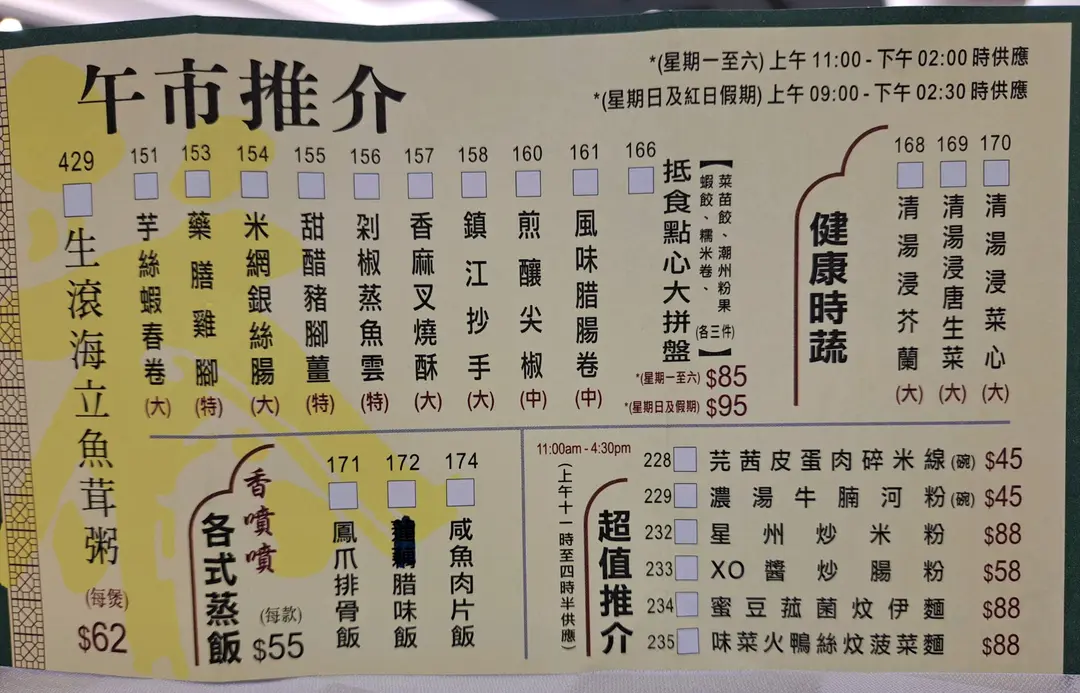 午市推介
*(星期一至六) 上午 11:00 - 下午 02:00 時供應
*(星期日及紅日假期) 上午 09:00 - 下午 02:30 時供應
429
生滾海立魚茸粥
(每煲)
$62
151
芋絲蝦春卷
(大)
153
藥膳雞腳
(特)
154
米網銀絲腸
(大)
155
甜醋豬腳薑
(特)
156
剁椒蒸魚雲
(特)
157
香麻叉燒酥
(大)
158
鎮江抄手
(大)
160
煎釀尖椒
(中)
161
風味腊腸卷
(中)
166
抵食點心大拼盤
【菜苗餃、潮州粉果
蝦餃、糯米卷、
(各三件)】
*(星期一至六) $85
*(星期日及假期) $95
健康時蔬
168
清湯浸芥蘭
(大)
169
清湯浸唐生菜
(大)
170
清湯浸菜心
(大)
香噴噴
各式蒸飯
(每款)
$55
171
鳳爪排骨飯
172
腊味飯
174
咸魚肉片飯
11:00am - 4:30pm
(上午十一時至四時半供應)
超值推介
228 芫茜皮蛋肉碎米線(碗) $45
229 濃湯牛腩河粉(碗) $45
232 星州炒米粉 $88
233 XO醬炒腸粉 $58
234 蜜豆菰菌炆伊麵 $88
235 味菜火鴨絲炆菠菜麵 $88